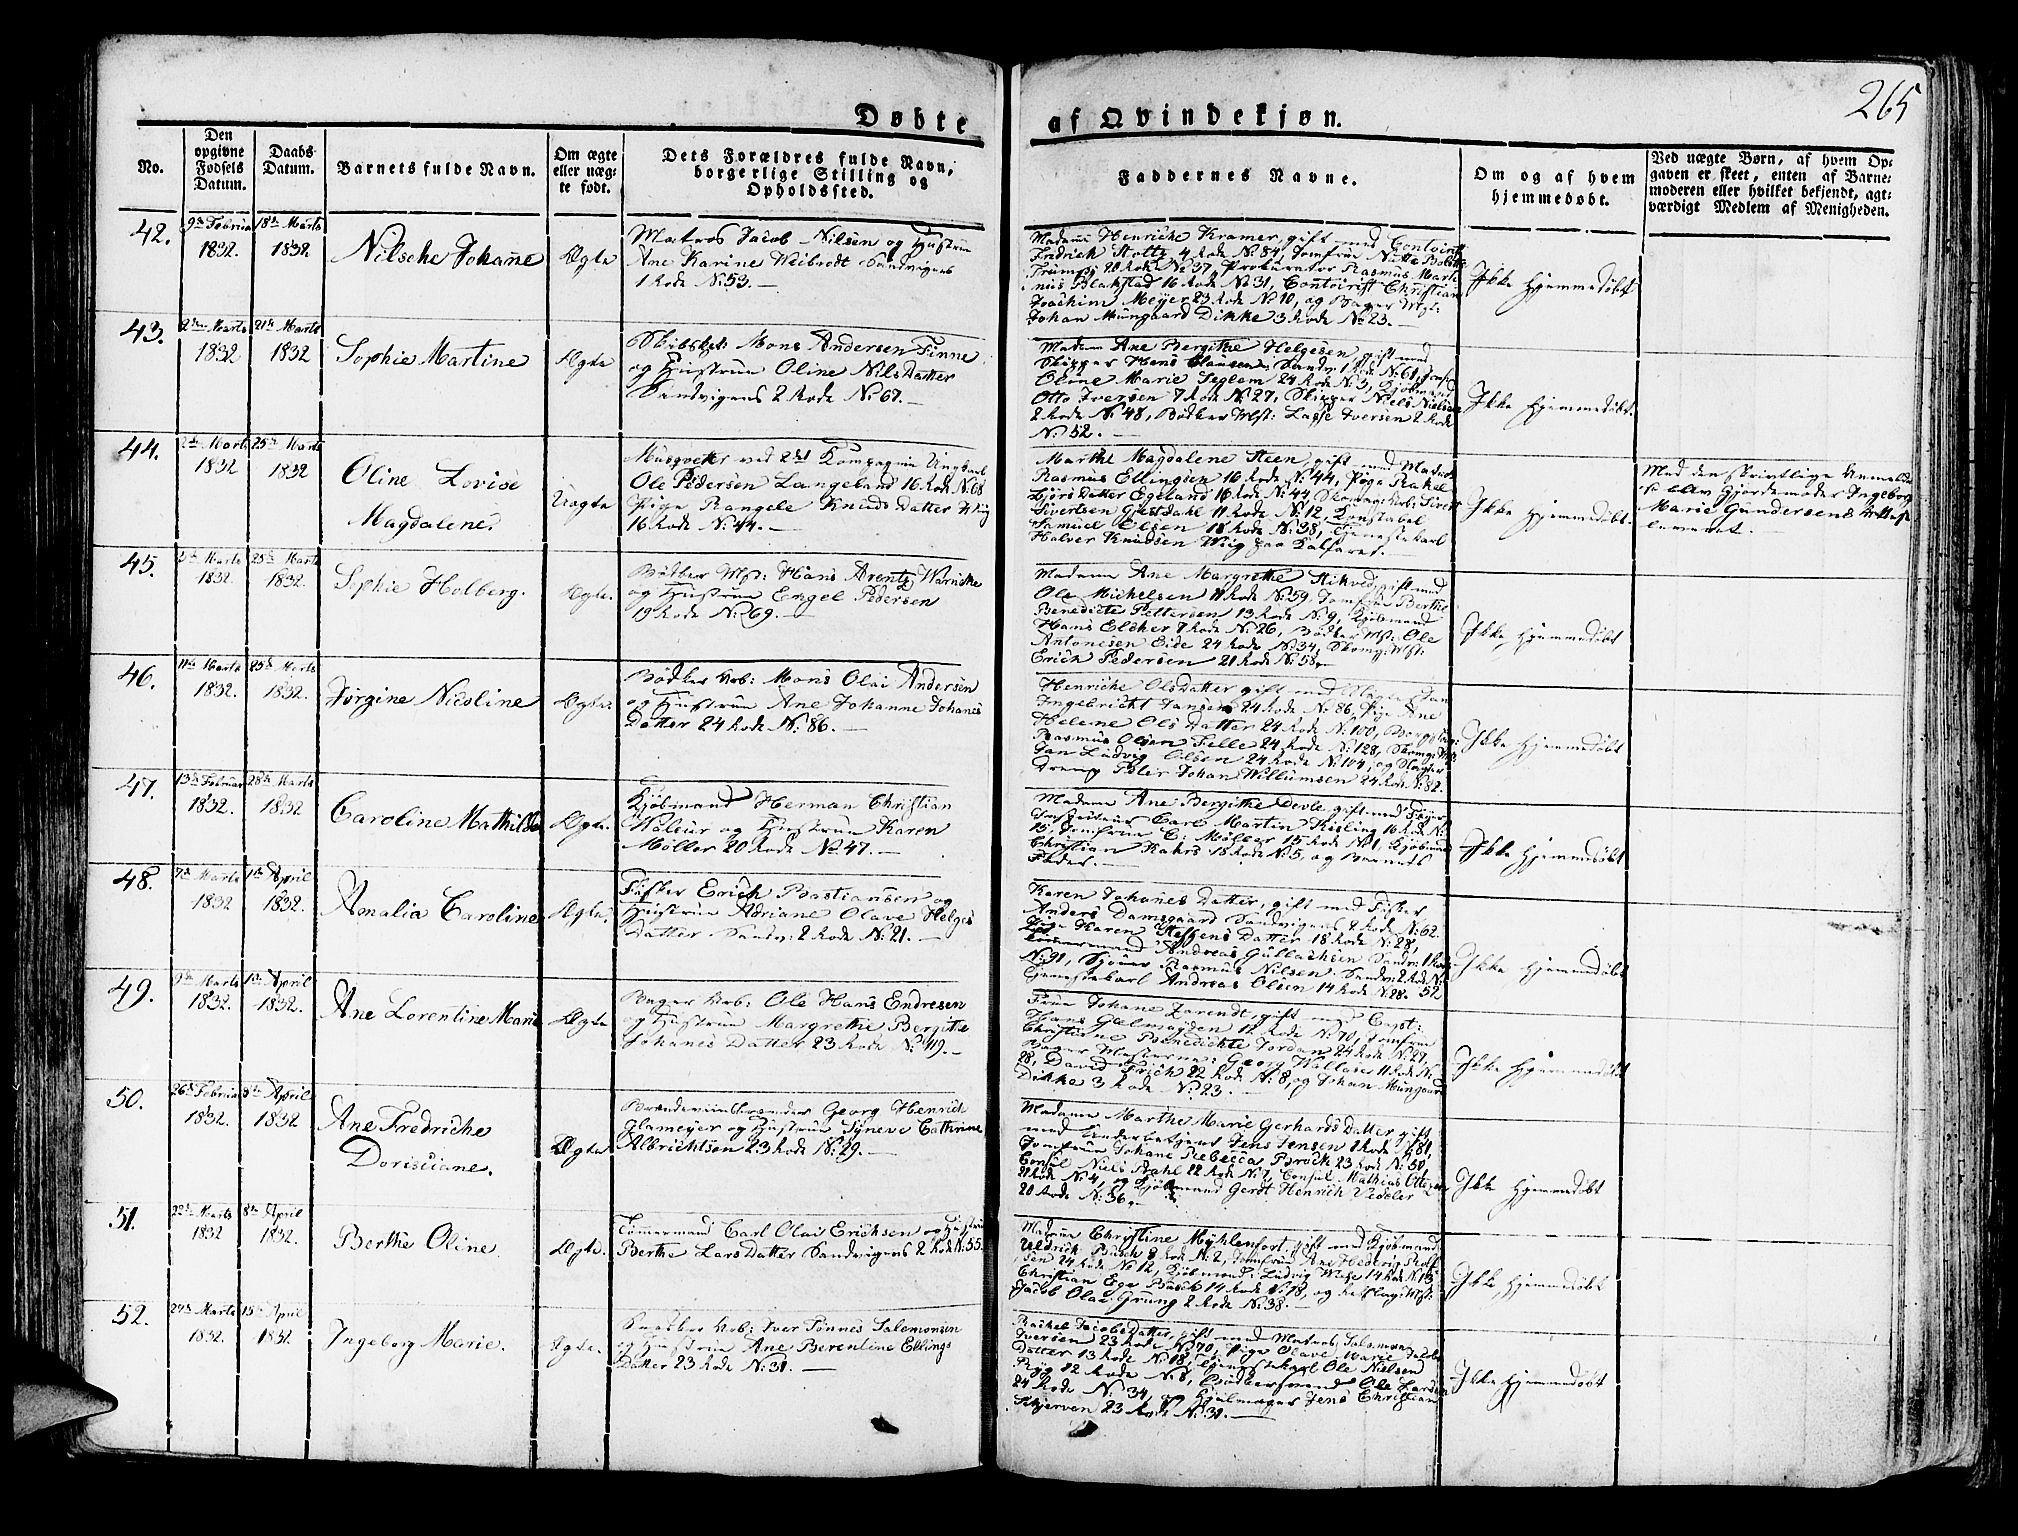 265
Døbte af Qvindekjøn.
No.
Den opgivne Fødsels Datum.
Daabs Datum.
Barnets fulde Navn.
Om ægte eller uægte født.
Dets Forældres fulde Navn, borgerlige Stilling og Opholdssted.
Faddernes Navne.
Om og af hvem hjemmedøbt.
Ved uægte Børn, af hvem Opgaven er skeet, enten af Barnemoderen eller hvilket bekjendt, agtværdigt Medlem af Menigheden.
42.
9de Februar 1832.
18de Marts 1832
Nilsche Johanne
Ægte
Matros Jacob Nilsen og Hustrue
Ane Karine Weibrodt Sandvigens
1 Rode No 53.
Madame Henriche Kramer gift med Contoirist
Fredrich Stoltz 4 Rode No 84, Jomfrue Nitte Bolette
Trumpy 20 Rode No 37, Prokurator Rasmus Marti
nus Blakstad 16 Rode No 31, Contoirist Christian
Joachim Meyer 23 Rode No 10, og Bager Mst:
Johan Mungaard Dikke 3 Rode No 23.
Ikke Hjemmedøbt
43.
2den Marts 1832
21de Marts 1832
Sophie Martine
Ægte
Skibskpt: Mons Andersen Finne
og Hustrue Oline Nils Datter
Sandvigens 2 Rode No 67.
Madam Ane Bergithe Helgesen, gift med
Skipper Hans Clausen Sandv: 1 Rode No 61, Jomf:
Oline Marie Seglem 24 Rode No 3, Kjøbmand
Otto Iversen 7 Rode No 27, Skipper Niels Nielsen
2 Rode No 48, Bødker Mst: Lasse Iversen 2 Rode
No 52.
Ikke Hjemmedøbt.
44.
2den Marts 1832
25de Marts 1832
Oline Lovise
Magdalene.
Uægte
Musqveteer ved 2det Kompagnie Ungkarl
Ole Pedersen Langeland 16 Rode No 68
Pige Rangele Knuds Datter Wiig
16 Rode No 44.
Marthe Magdalene Steen, gift med Matros
Rasmus Ellingsen 16 Rode No 44, Pige Rakel
Sjørs Datter Egeland 16 Rode No 44, Skomag: Svb: Sivert
Sivertsen Giestdahl 11 Rode No 12, Konstabel
Samuel Olsen 18 Rode No 38, Tjenestekarl
Halver Knudsen Wiig paa Kalfaret.
Ikke Hjemmedøbt.
Med den skrivtlige Anmeldel
se blev Gjordemoder Ingeborg
Marie Gundersens Attest
leveret.
45.
Marts 1832.
25de Marts 1832.
Sophie Holberg.
Ægte.
Bødker Mst: Hans Arentz Warncke
og Hustrue Engel Pedersen
19 Rode No 69.
Madame Ane Margrethe Stikved, gift med
Ole Michelsen 11 Rode No 59, Jomfrue Berthe
Benedicte Pettersen 13 Rode No 9, Kjøbmand
Hans Eldker 7 Rode No 26, Bødker Mst: Ole
Antonesen Eide 24 Rode No 34, Skomag: Mst:
Erich Pedersen 21 Rode No 58.
Ikke Hjemmedøbt
46.
11te Marts 1832.
25de Marts 1832.
Jørgine Nicoline
Ægte.
Bødker Svb: Mons Olai Andersen
og Hustrue Ane Johanne Johanes
Datter 24 Rode No 86.
Henriche Ols Datter gift med Jan
Ingebricht Jansen 24 Rode No 86, Pige Ane
Helene Ols Datter 24 Rode No 100,
Rasmus Olsen Felle 24 Rode No 128, Skomag: Mst:
Jan Ludvig Olsen 24 Rode No 104, og Slagter
dreng Peder Johan Willumsen 24 Rode No 82.
Ikke Hjemmedøbt
47.
13de Februar 1832.
28de Marts 1832
Caroline Mathilde
Ægte.
Kjøbmand Herman Christian
Waleur og Hustrue Karen
Møller 20 Rode No 47.
Madame Ane Bergithe Devle, gift med
Carl Martin Kisling 16 Rode No
15, Jomfrue C: Møller 15 Rode No 1, Kjøbmd
Christian Kahrs 18 Rode No 5, og Barnets
Fader.
Ikke Hjemmedøbt
48.
7de Marts 1832
1ste April 1832.
Amalia Caroline
Ægte.
Fisker Erich Bastiansen og
Hustrue Adriane Olave Helges
Datter Sandv: 2 Rode No 21.
Karen Johanes Datter, gift med Fisker
Anders Damsgaard Sandvigens 2 Rode No 62
Pige Karen Steffens Datter 18 Rode No 28,
Tømmermand Andreas Gullachsen Sandv: 1 Rode
No 91, Rasmus Nilsen Sandv: 2 Rode No
Tjenestekarl Andreas Olsen 14 Rode No 28. 52
Ikke Hjemmedøbt
49.
9de Marts 1832.
1ste April 1832.
Ane Lorentine Marie
Ægte
Bager Svb: Ole Hans Endresen
og Hustrue Margrethe Bergithe
Johanes Datter 23 Rode No 49.
Frue Johane Zarendt, gift med Capt:
Hans Gelmuyden 12 Rode No 70, Jomfrue
Christiane Benedichte Jordan 24 Rode No 27,
Bager Mesterne: Georg Wallace 11 Rode No
28, David Frich 22 Rode No 8, og Johan Mungaard
Dikke 3 Rode No 23.
Ikke Hjemmedøbt
50.
26de Februar 1832.
8de April 1832
Ane Fredriche
Dorisciane.
Ægte
Brændeviinsbrænder Georg Henrich
Glameyer og Hustrue Syneve Cathrine
Albrichtsen 23 Rode No 29.
Madame Marthe Marie Gerhards Datter gift
med Jens Jensen 1 Rode No 81,
Jomfrue Johane Rebecca Brock 23 Rode No 50,
Consul Niels Dahl 22 Rode No 7, Consul Mathias Ottesen
21 Rode No 4, og Kjøbmand Gerdt Henrich Vedeler
20 Rode No 36.
Ikke Hjemmedøbt
51.
22de Marts 1832
8de April 1832.
Berthe Oline.
Ægte.
Tømmermand Carl Olai Erichsen og Hustrue
Berthe Lars Datter Sandvigens 2 Rode No 55.
Madame Christine Mÿhlenfort, gift med Kjøbmand
Uldrich Busch 8 Rode No 2, Jomfrue Ane Hedevig Rolf
sen 24 Rode No 12, Kjøbmand: Ludvig Wiese 14 Rode No 13,
Christian Ege Busch 14 Rode No 18, og
Jacob Olai Grung 2 Rode No 38.
Ikke Hjemmedøbt
52.
24de Marts 1832.
15de April 1832.
Ingeborg Marie.
Ægte.
Snedker Svb: Iver Tønnes Salomonsen
og Hustrue Ane Berentine Ellings
Datter 23 Rode No 31.
Rachel Jacobs Datter, gift med Matros Salomon
Iversen 23 Rode No 70, Pige Olave Marie Jacobs
Datter 13 Rode No 18, Tjenestekarl Ole Nielsen
Ryg 22 Rode No 8, Bødkersvend Ole Larsen
24 Rode No 34, og Hjulmager Jens Christian
Skjerven 23 Rode No 31.
Ikke Hjemmedøbt